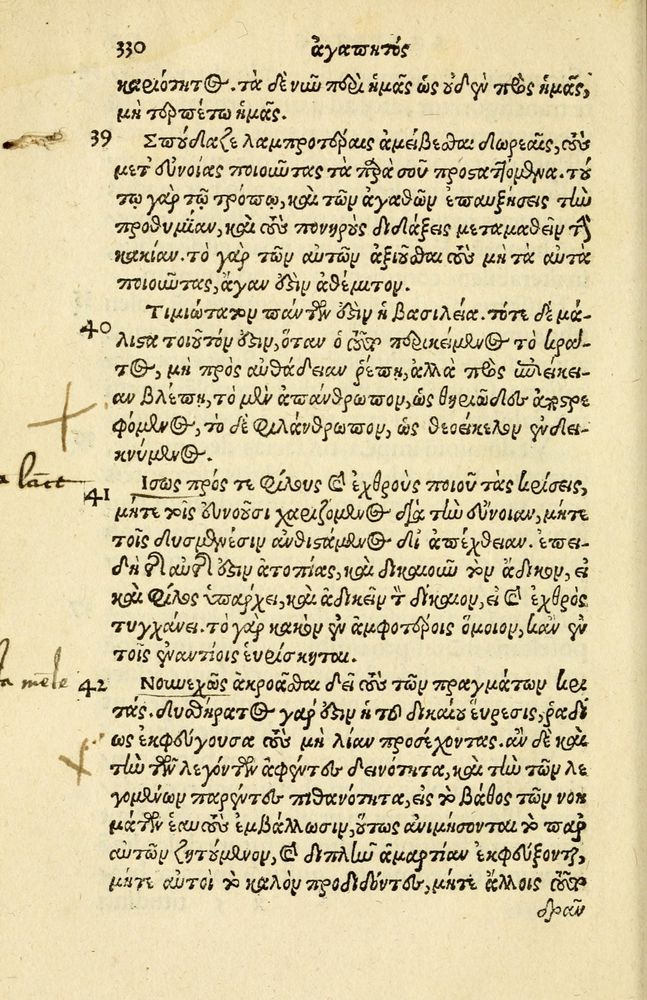 330 ἀγαπητός
καιότητος. τὰ δὲ νῦν περὶ ἡμᾶς ὡς οὐδὲν πρὸς ἡμᾶς,
μὴ τερπέτω ἡμᾶς.
39 Σπούδαζε λαμπροτέραις ἀμείβεσθαι δωρεαῖς, τοὺς
μετ' εὐνοίας ποιοῦντας τὰ παρὰ σοῦ προσταττόμενα. τού
τῳ γὰρ τῷ τρόπῳ, καὶ τῶν ἀγαθῶν ἐπαυξήσεις τὴν
προθυμίαν, καὶ τοὺς πονηροὺς διδάξεις μεταμαθεῖν τὴν
κακίαν. τὸ γὰρ τῶν αὐτῶν ἀξιοῦσθαι τοὺς μὴ τὰ αὐτὰ
ποιοῦντας, ἄγαν ἐστὶν ἀθέμιτον.
40 Τιμιώτατον πάντων ἐστὶν ἡ βασιλεία. τότε δὲ μά-
λιστα τοιοῦτον ἐστιν, ὅταν ὁ τοῦτο περικείμενος τὸ κρά-
τος, μὴ πρὸς αὐθάδειαν ῥέπῃ, ἀλλὰ πρὸς ἐπιείκει-
αν βλέπῃ, τὸ μὲν ἀπάνθρωπον, ὡς θηριῶδες ἀποστρε
φόμενος, τὸ δὲ φιλάνθρωπον, ὡς θεοείκελον ἐνδει-
κνύμενος.
41 Ισως πρός τε φίλους καὶ ἐχθροὺς ποιοῦ τὰς κρίσεις,
μήτε τοῖς εὐνοῦσι χαριζόμενος διὰ τὴν εὔνοιαν, μήτε
τοῖς δυσμενέσιν ἀνθιστάμενος δι' ἀπέχθειαν. ἐπει-
δὴ τῆς αὐτῆς ἐστιν ἀτοπίας, καὶ δικαιοῦν τὸν ἄδικον, εἰ
καὶ φίλος ὑπάρχει, καὶ ἀδικεῖν τὸν δίκαιον, εἰ καὶ ἐχθρὸς
τυγχάνει. τὸ γὰρ κακὸν ἐν ἀμφοτέροις ὅμοιον, κἂν ἐν
τοῖς ἐναντίοις εὑρίσκηται.
42 Νουνεχῶς ἀκροᾶσθαι δεῖ τοὺς τῶν πραγμάτων κρι
τάς. δυσθήρατος γάρ ἐστιν ἡ τοῦ δικαίου εὕρεσις, ῥᾳδί
ως ἐκφεύγουσα τοὺς μὴ λίαν προσέχοντας. ἂν δὲ καὶ
τὴν τῶν λεγόντων ἀφέντες δεινότητα, καὶ τὴν τῶν λε
γομένων παρέντες πιθανότητα, εἰς τὸ βάθος τῶν νοη
μάτων ἑαυτοὺς ἐμβάλλωσιν, οὕτως ἀνιμήσονται τὸ παρ'
αὐτῶν ζητούμενον, καὶ διπλῆν ἁμαρτίαν ἐκφεύξονται,
μήτε αὐτοὶ τὸ καλὸν προδιδόντες, μήτε ἄλλοις τοῦτο
δρᾶν